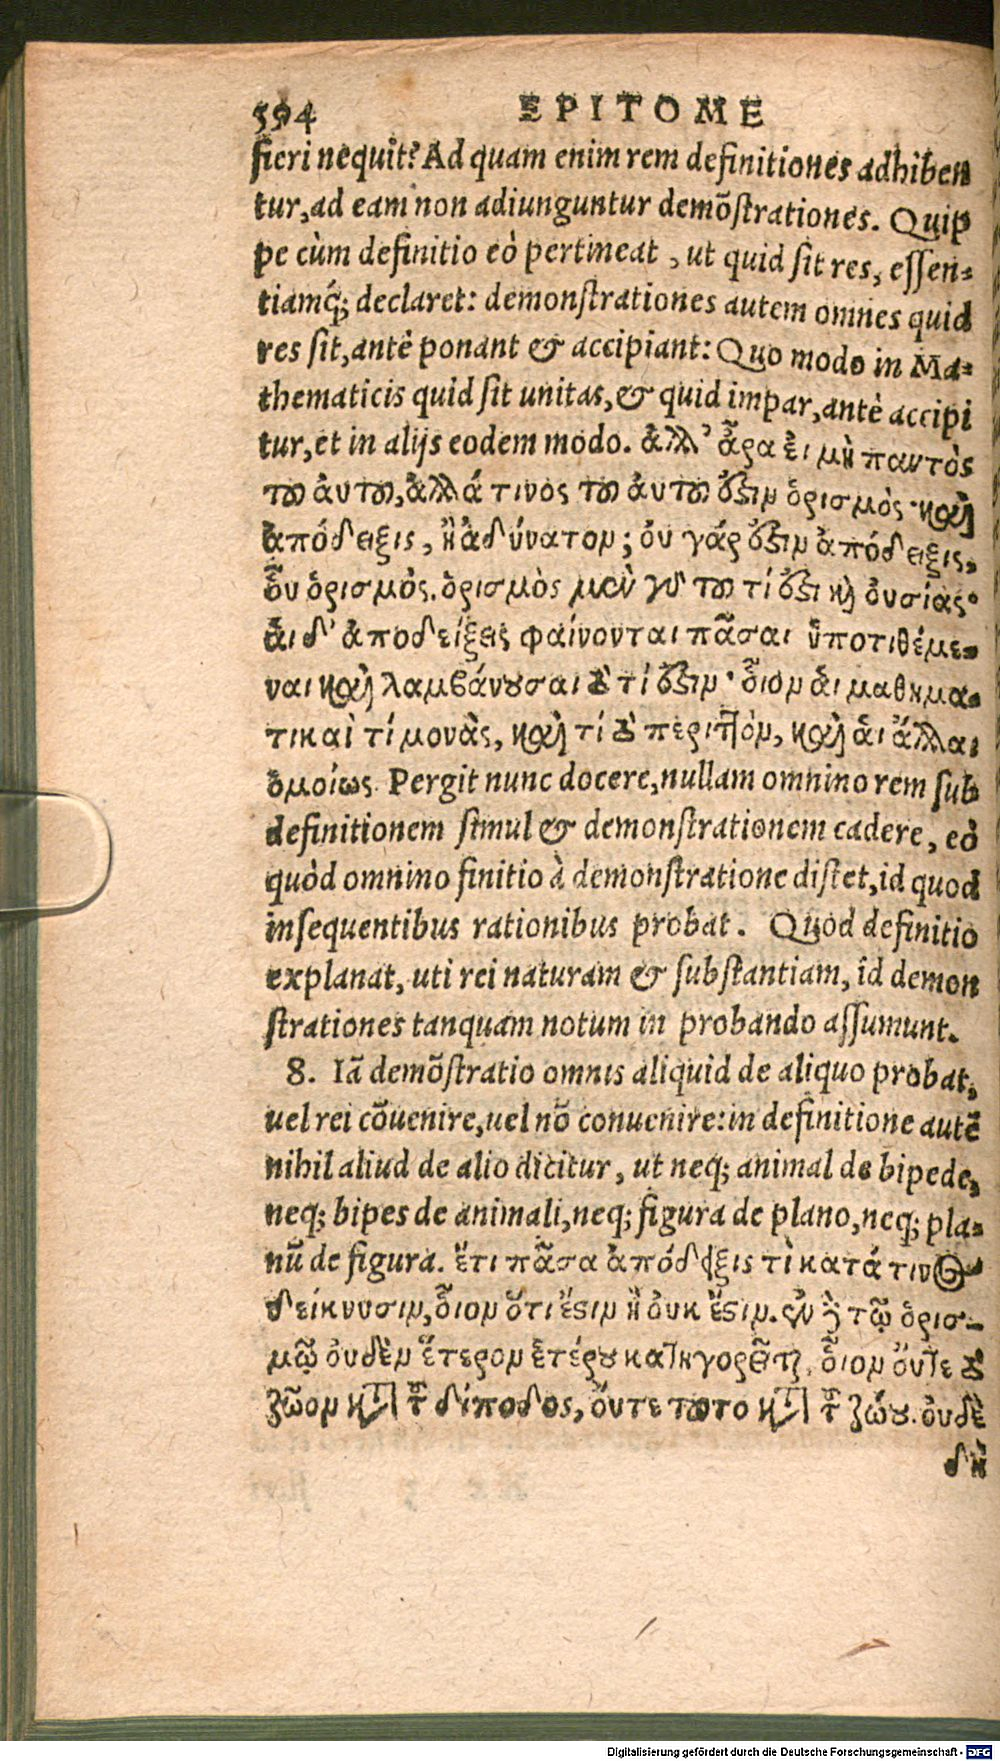 594 EPITOME
fieri nequit? Ad quam enim rem definitiones adhiben
tur, ad eam non adiunguntur demõstrationes. Quip
pe cùm definitio eò pertineat, ut quid sit res, essen-
tiamq́; declaret: demonstrationes autem omnes quid
res sit, antè ponant & accipiant: Quo modo in Ma-
thematicis quid sit unitas, & quid impar, antè accipi
tur, et in alijs eodem modo. ἀλλ' ἆρα εἰ μὴ παντὸς
τοῦ ἀυτοῦ, ἀλλά τινος τοῦ ἀυτοῦ ὅξιν ὁρισμὸς καὶ
ἀπόδειξις, ἢ ἀδύνατον; ὀυ γάρ ὅξιν ἀπόδειξις,
ὗ ὁρισμός. ὁρισμὸς μὲν γὰρ τοῦ τί ὅξι καὶ ὀυσίας·
ἁι δ' ἀποδείξεις φαίνονται πᾶσαι ὑποτιθέμε-
ναι καὶ λαμβάνουσαι τὸ τί ὅξιν· ὅιον ἁι μαθημα-
τικαὶ τί μονὰς, καὶ τί τὸ περιττὸν, καὶ ἁι ἄλλαι
ὁμοίως. Pergit nunc docere, nullam omnino rem sub
definitionem simul & demonstrationem cadere, eò
quòd omnino finitio à demonstratione distet, id quod
insequentibus rationibus probat. Quod definitio
explanat, uti rei naturam & substantiam, id demon
strationes tanquam notum in probando assumunt.
8. Iã demõstratio omnis aliquid de aliquo probat,
uel rei cõuenire, uel nõ conuenire: in definitione autẽ
nihil aliud de alio dicitur, ut neq; animal de bipede,
neq; bipes de animali, neq; figura de plano, neq; pla-
nũ de figura. ἔτι πᾶσα ἀπόδειξις τὶ κατά τινος
δείκνυσιν, ὅιον ὅτι ἔστιν ἢ ὀυκ ἔστιν. ἐν δὲ τῷ ὁρισ-
μῷ ὀυδὲν ἕτερον ἑτέρου κατηγορεῖται, ὅιον ὄυτε τὸ
ζῶον κατὰ τοῦ δίποδος, ὄυτε τοῦτο κατὰ τοῦ ζώου. ὀυδὲ
δὴ
Digitalisierung gefördert durch die Deutsche Forschungsgemeinschaft - DFG